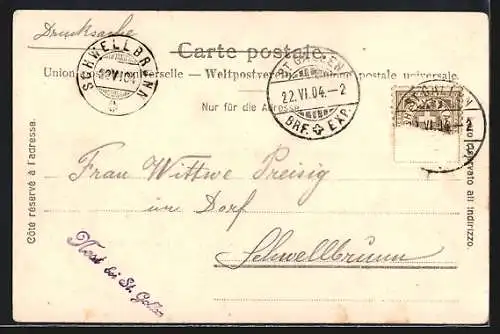 Drucksache
Carte postale.
Union postale universelle. – Weltpostverein. – Unione postale universale.
Nur für die Adresse.
SCHWELLBRUNN
22.VI.04.
ST. GALLEN
22.VI.04.–2
BRF. EXP.
ST. GALLEN
VI.04.–2
Côté réservé à l'adresse.
Lato riservato all indirizzo.
Frau Wittwe Preisig
im Dorf
Schwellbrunn
bei St. Gallen